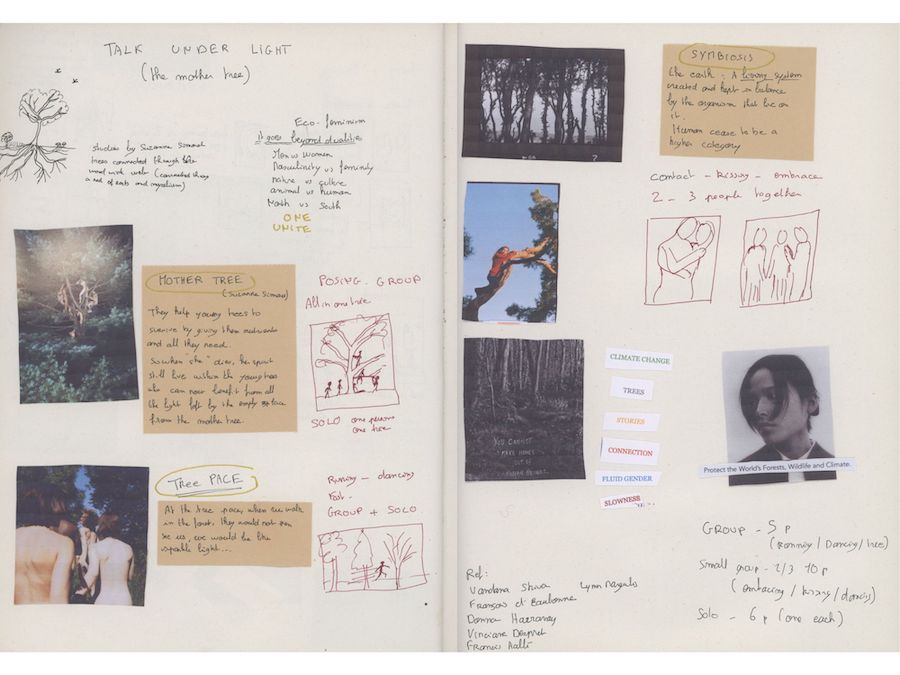 TALK UNDER LIGHT
(the mother tree)
studies by Suzanne Simard
trees connected through
wood wide web (connected
of roots and mycelium)
Eco-feminism
it goes beyond dualities
Men vs women
Masculinity vs feminity
nature vs culture
animal vs human
North vs South
ONE
UNITE
MOTHER TREE
(Suzanne Simard)
They help young trees to
survive by giving them nutrients
and all they need.
So when "she" dies, the spirit
still live within the young trees
who can now benefit from all
the light left by the empty space
from the mother tree.
POSING - GROUP
All in one tree
SOLO one person
one tree
Tree PACE
At the tree pace, when we walk
in the forest, they would not even
see us, we would be like
sparkle light...
Running - dancing
GROUP + SOLO
SYMBIOSIS
the earth: A living system
created and kept in balance
by the organism that live on
it.
Human cease to be a
higher category
7
contact - kissing - embrace
2 - 3 people together
YOU CANNOT
MAKE HOMES
OUT OF
HUMAN BEINGS
CLIMATE CHANGE
TREES
STORIES
CONNECTION
FLUID GENDER
SLOWNESS
Protect the World's Forests, Wildlife and Climate.
GROUP - 5 p
(Running / Dancing / tree)
Small group - 2/3 10 p
(embracing / kissing / dancing)
Solo - 6 p (one each)
Ref:
Vandana Shiva Lynn Margulis
Françoise d'Eaubonne
Donna Harraway
Vinciane Despret
Francis Hallé